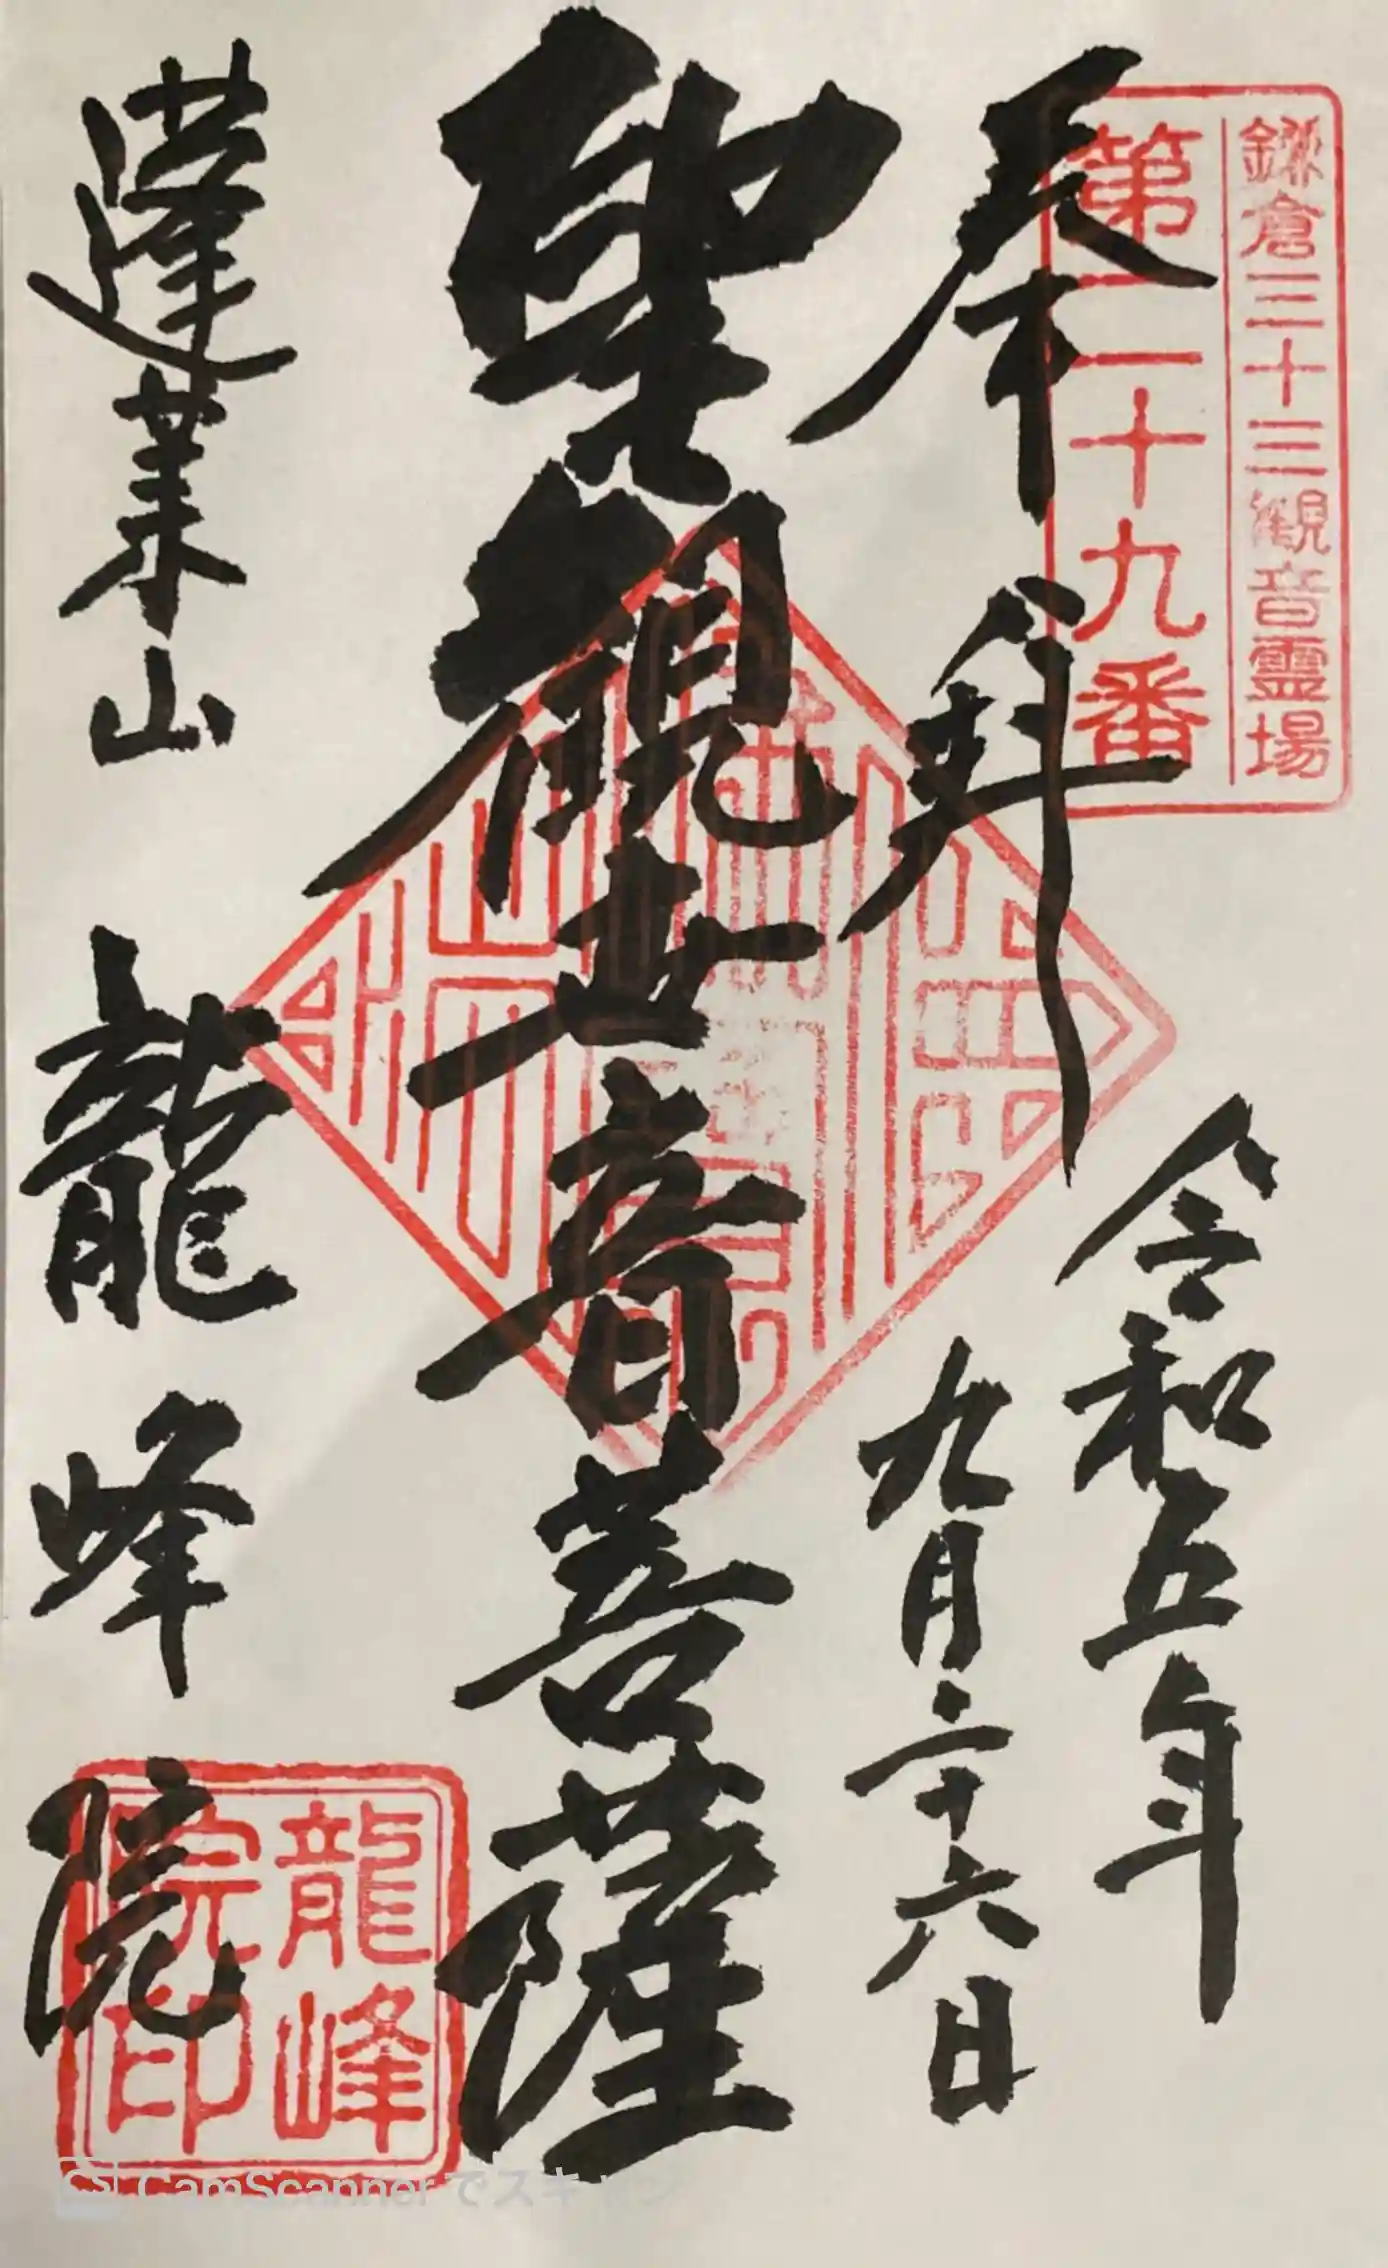 鎌倉三十三観音霊場
第二十九番
奉拝
令和五年
九月二十六日
聖観世音菩薩
蓬莱山
龍峰院
龍峰
院印
CamScannerでスキャン